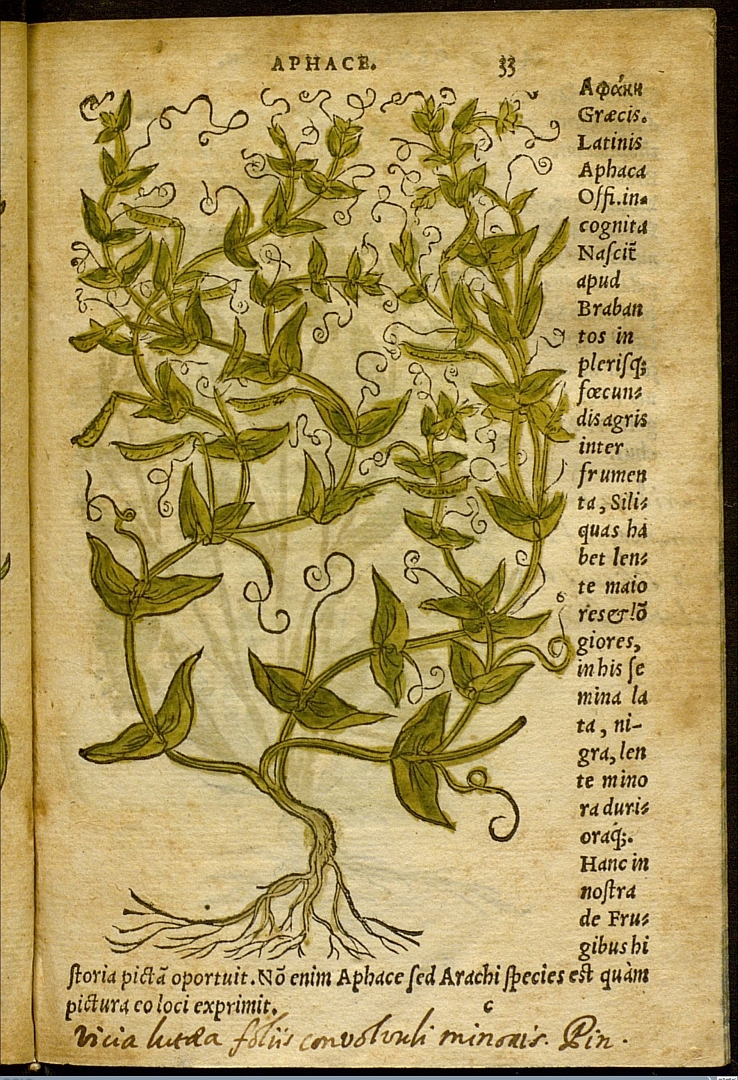 APHACE. 33
Αφάκη
Græcis.
Latinis
Aphaca
Offi.in-
cognita
Naſcit̃
apud
Braban
tos in
pleriſq;
fœcun-
dis agris
inter
frumen
ta, Sili-
quas ha
bet len-
te maio
res & lõ
giores,
in his ſe
mina la
ta, ni-
gra, len
te mino
ra duri-
oraq́;.
Hanc in
noſtra
de Fru-
gibus hi
ſtoria pictã oportuit. Nõ enim Aphace ſed Arachi ſpecies eſt quàm
pictura eo loci exprimit.
c
Vicia lutæa foliis convolvuli minoris. Pin.